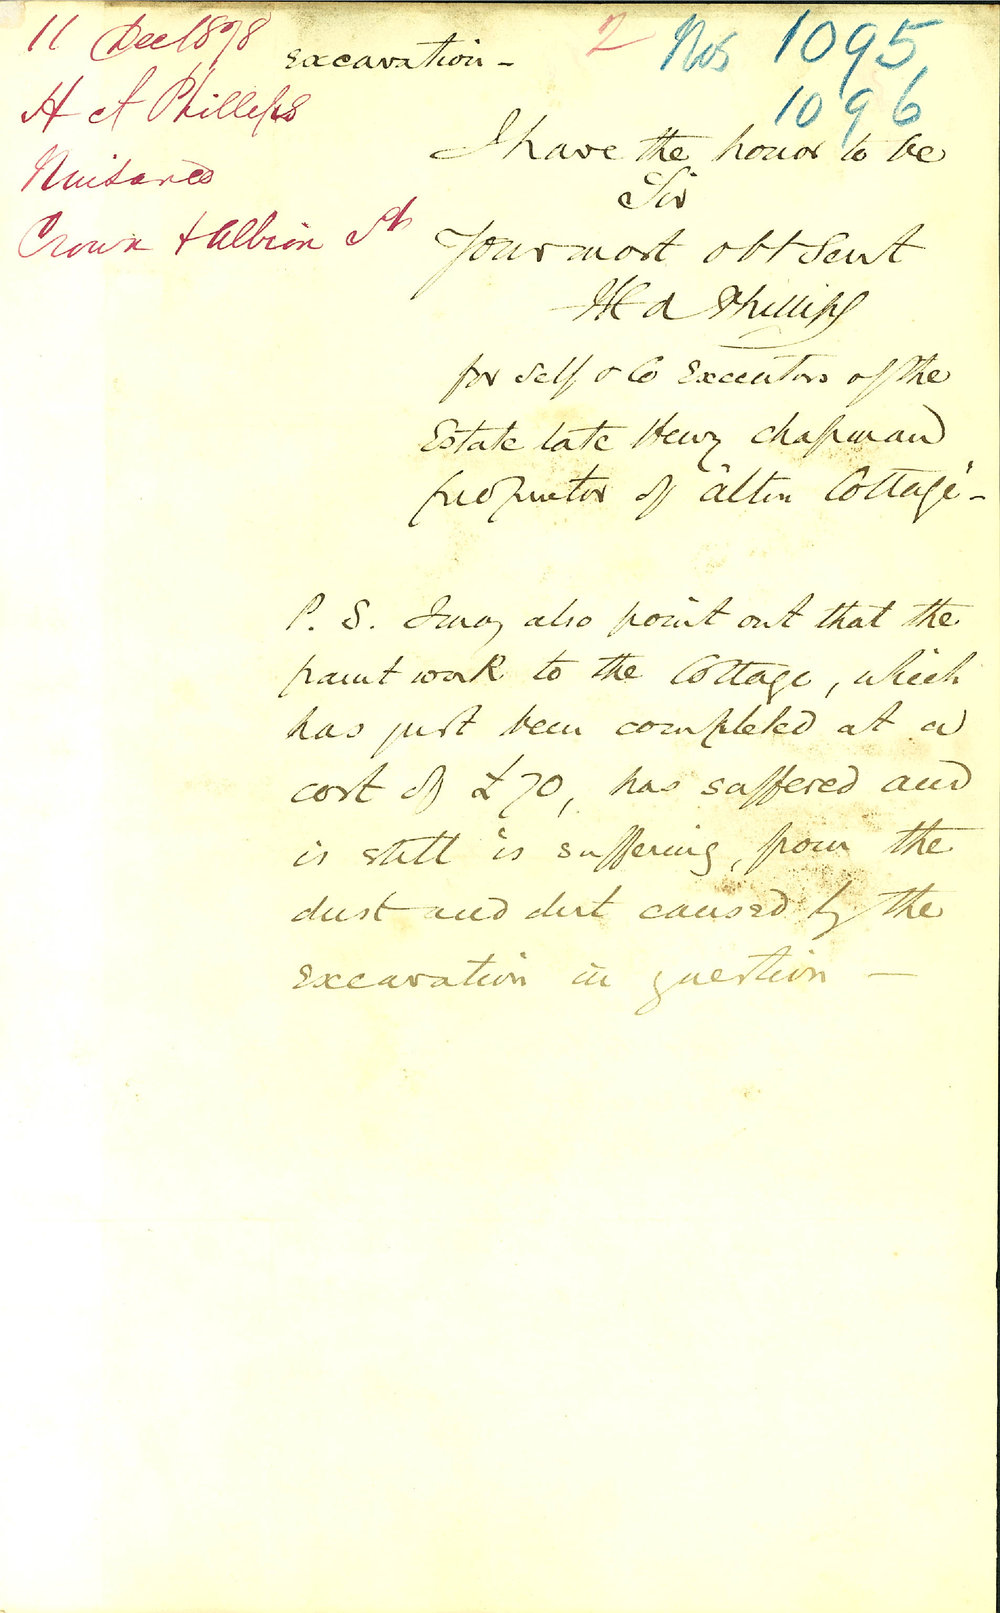 11 Dec 1878
H A Phillips
Nuisances
Crown & Albion St
2
Nos 1095
1096
excavation -
I have the honor to be
Sir
Your most obt Servt
H A Phillips
for self & Co Executors of the
Estate late Henry Chapman
proprietor of "Alten Cottage" -
P. S. I may also point out that the
paint work to the Cottage, which
has just been completed at a
cost of £70, has suffered and
is still is suffering, from the
dust and dirt caused by the
excavation in question —